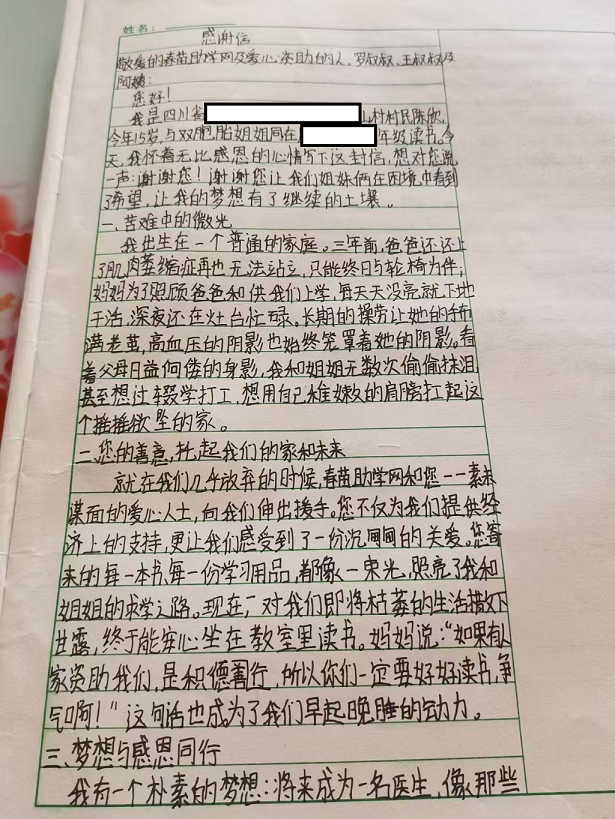 姓名:
感谢信
敬爱的春苗助学网及爱心资助的人，罗叔叔、王叔叔及
阿姨:
您好!
我是四川省 山村村民陈欣,
今年15岁,与双胞胎姐姐同在 年级读书。今
天,我怀着无比感恩的心情写下这封信,想对您说
一声:谢谢您!谢谢您让我们姐妹俩在困境中看到
了希望,让我的梦想有了继续的土壤。
一、苦难中的微光
我出生在一个普通的家庭。三年前,爸爸还还上
了肌肉萎缩症再也无法站立,只能终日与轮椅为伴,
妈妈为了照顾爸爸和供我们上学,每天天没亮就下地
干活,深夜还在灶台忙碌。长期的操劳让她的手布
满老茧,高血压的阴影也始终笼罩着她的阴影。看
着父母日益佝偻的身影,我和姐姐无数次偷偷抹泪,
甚至想过辍学打工,想用自己稚嫩的肩膀扛起这
个摇摇欲坠的家。
二、您的善意,托起我们的家和未来
就在我们几乎放弃的时候,春苗助学网和您一一素未
谋面的爱心人士,向我们伸出援手。您不仅为我们提供经
济上的支持,更让我们感受到了一份沉甸甸的关爱。您寄
来的每一本书,每一份学习用品,都像一束光,照亮了我和
姐姐的求学之路。现在,对我们即将枯萎的生活撒下
甘露,终于能安心坐在教室里读书。妈妈说:"如果有人
家资助我们,是积德善行,所以你们一定要好好读书,争
气啊!"这句话也成为了我们早起晚睡的动力。
三、梦想与感恩同行
我有一个朴素的梦想:将来成为一名医生,像那些